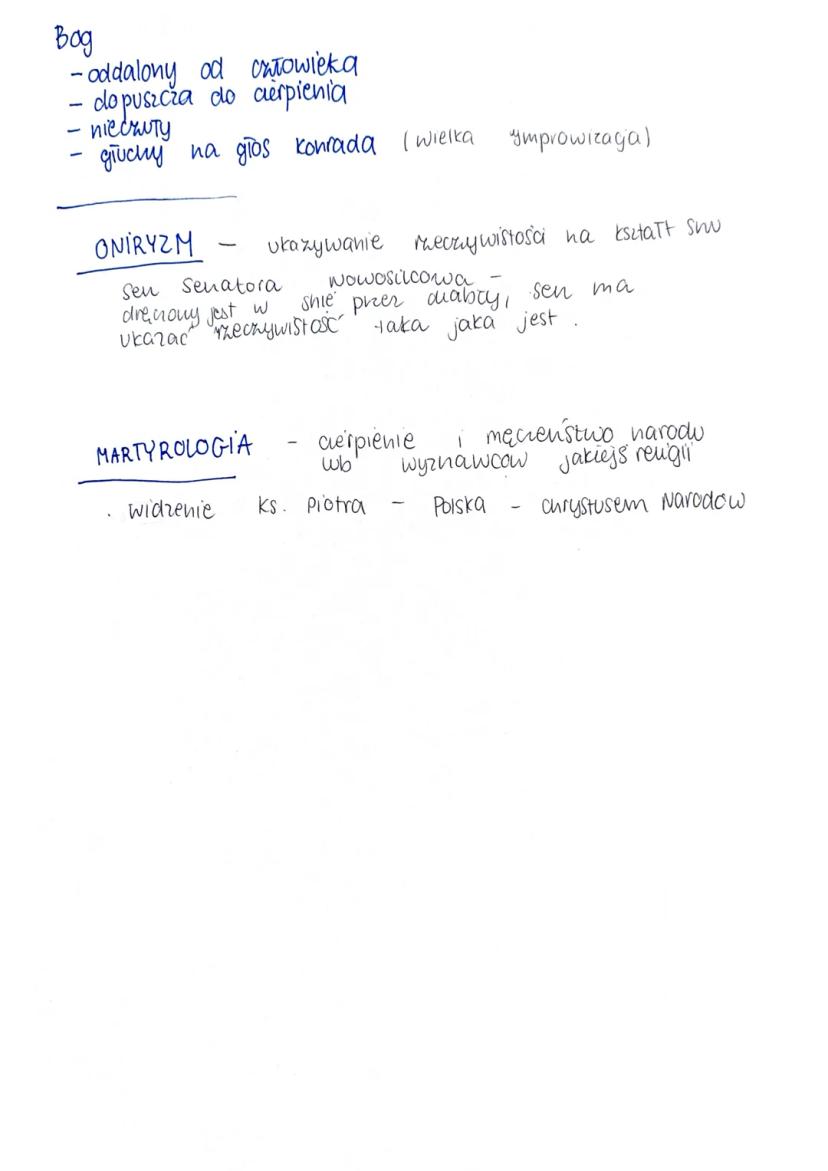 Bóg
- oddalony od człowieka
- dopuszcza do cierpienia
- nieczuły
- głuchy na głos Konrada (Wielka ymprowizacja)
ONIRYZM - ukazywanie rzeczywistości na kształt snu
sen Senatora Nowosilcowa -
dręczony jest w śnie przez diabły, sen ma
ukazać rzeczywistość taka jaka jest.
MARTYROLOGIA - cierpienie i męczeństwo narodu
lub wyznawców jakiejś religii
. widzenie ks. Piotra - Polska - Chrystusem Narodów